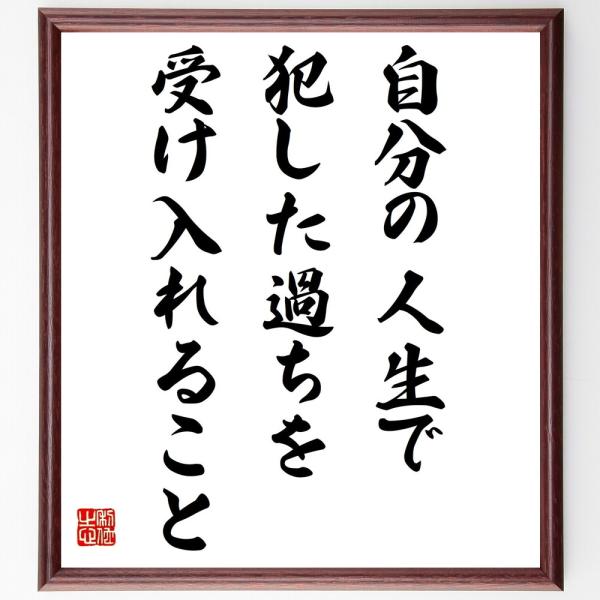 自分の人生で
犯した過ちを
受け入れること